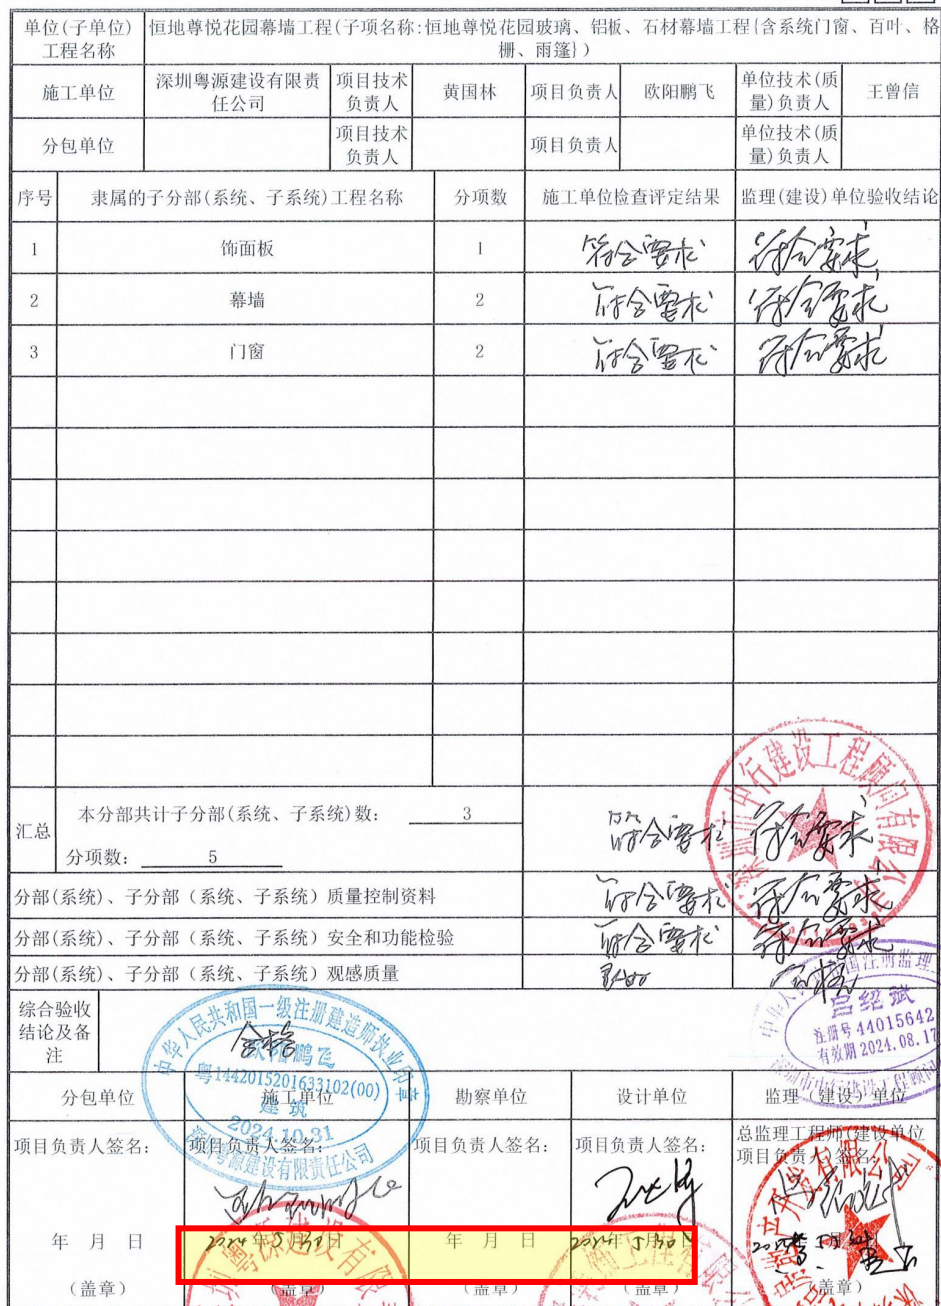 单位(子单位)工程名称 恒地尊悦花园幕墙工程(子项名称:恒地尊悦花园玻璃、铝板、石材幕墙工程{含系统门窗、百叶、格栅、雨篷})
施工单位 深圳粤源建设有限责任公司 项目技术负责人 黄国林 项目负责人 欧阳鹏飞 单位技术(质量)负责人 王曾信
分包单位 项目技术负责人 项目负责人 单位技术(质量)负责人
序号 隶属的子分部(系统、子系统)工程名称 分项数 施工单位检查评定结果 监理(建设)单位验收结论
1 饰面板 1 符合要求 符合要求
2 幕墙 2 符合要求 符合要求
3 门窗 2 符合要求 符合要求
汇总 本分部共计子分部(系统、子系统)数: 3
分项数: 5 符合要求 符合要求
分部(系统)、子分部（系统、子系统）质量控制资料 符合要求 符合要求
分部(系统)、子分部（系统、子系统）安全和功能检验 符合要求 符合要求
分部(系统)、子分部（系统、子系统）观感质量
综合验收结论及备注 合格
中华人民共和国一级注册建造师执业印章
欧阳鹏飞
粤1442015201633102(00)
建筑
2024.10.31
深圳粤源建设有限责任公司
深圳市中行建设工程顾问有限公司
吕绍斌
注册号 44015642
有效期 2024.08.17
分包单位 施工单位 勘察单位 设计单位 监理（建设）单位
项目负责人签名: 项目负责人签名: 项目负责人签名: 项目负责人签名: 总监理工程师(建设单位项目负责人)签名:
年 月 日 2024年5月30日 年 月 日 2024年5月30日
(盖章) (盖章) (盖章) (盖章) (盖章)